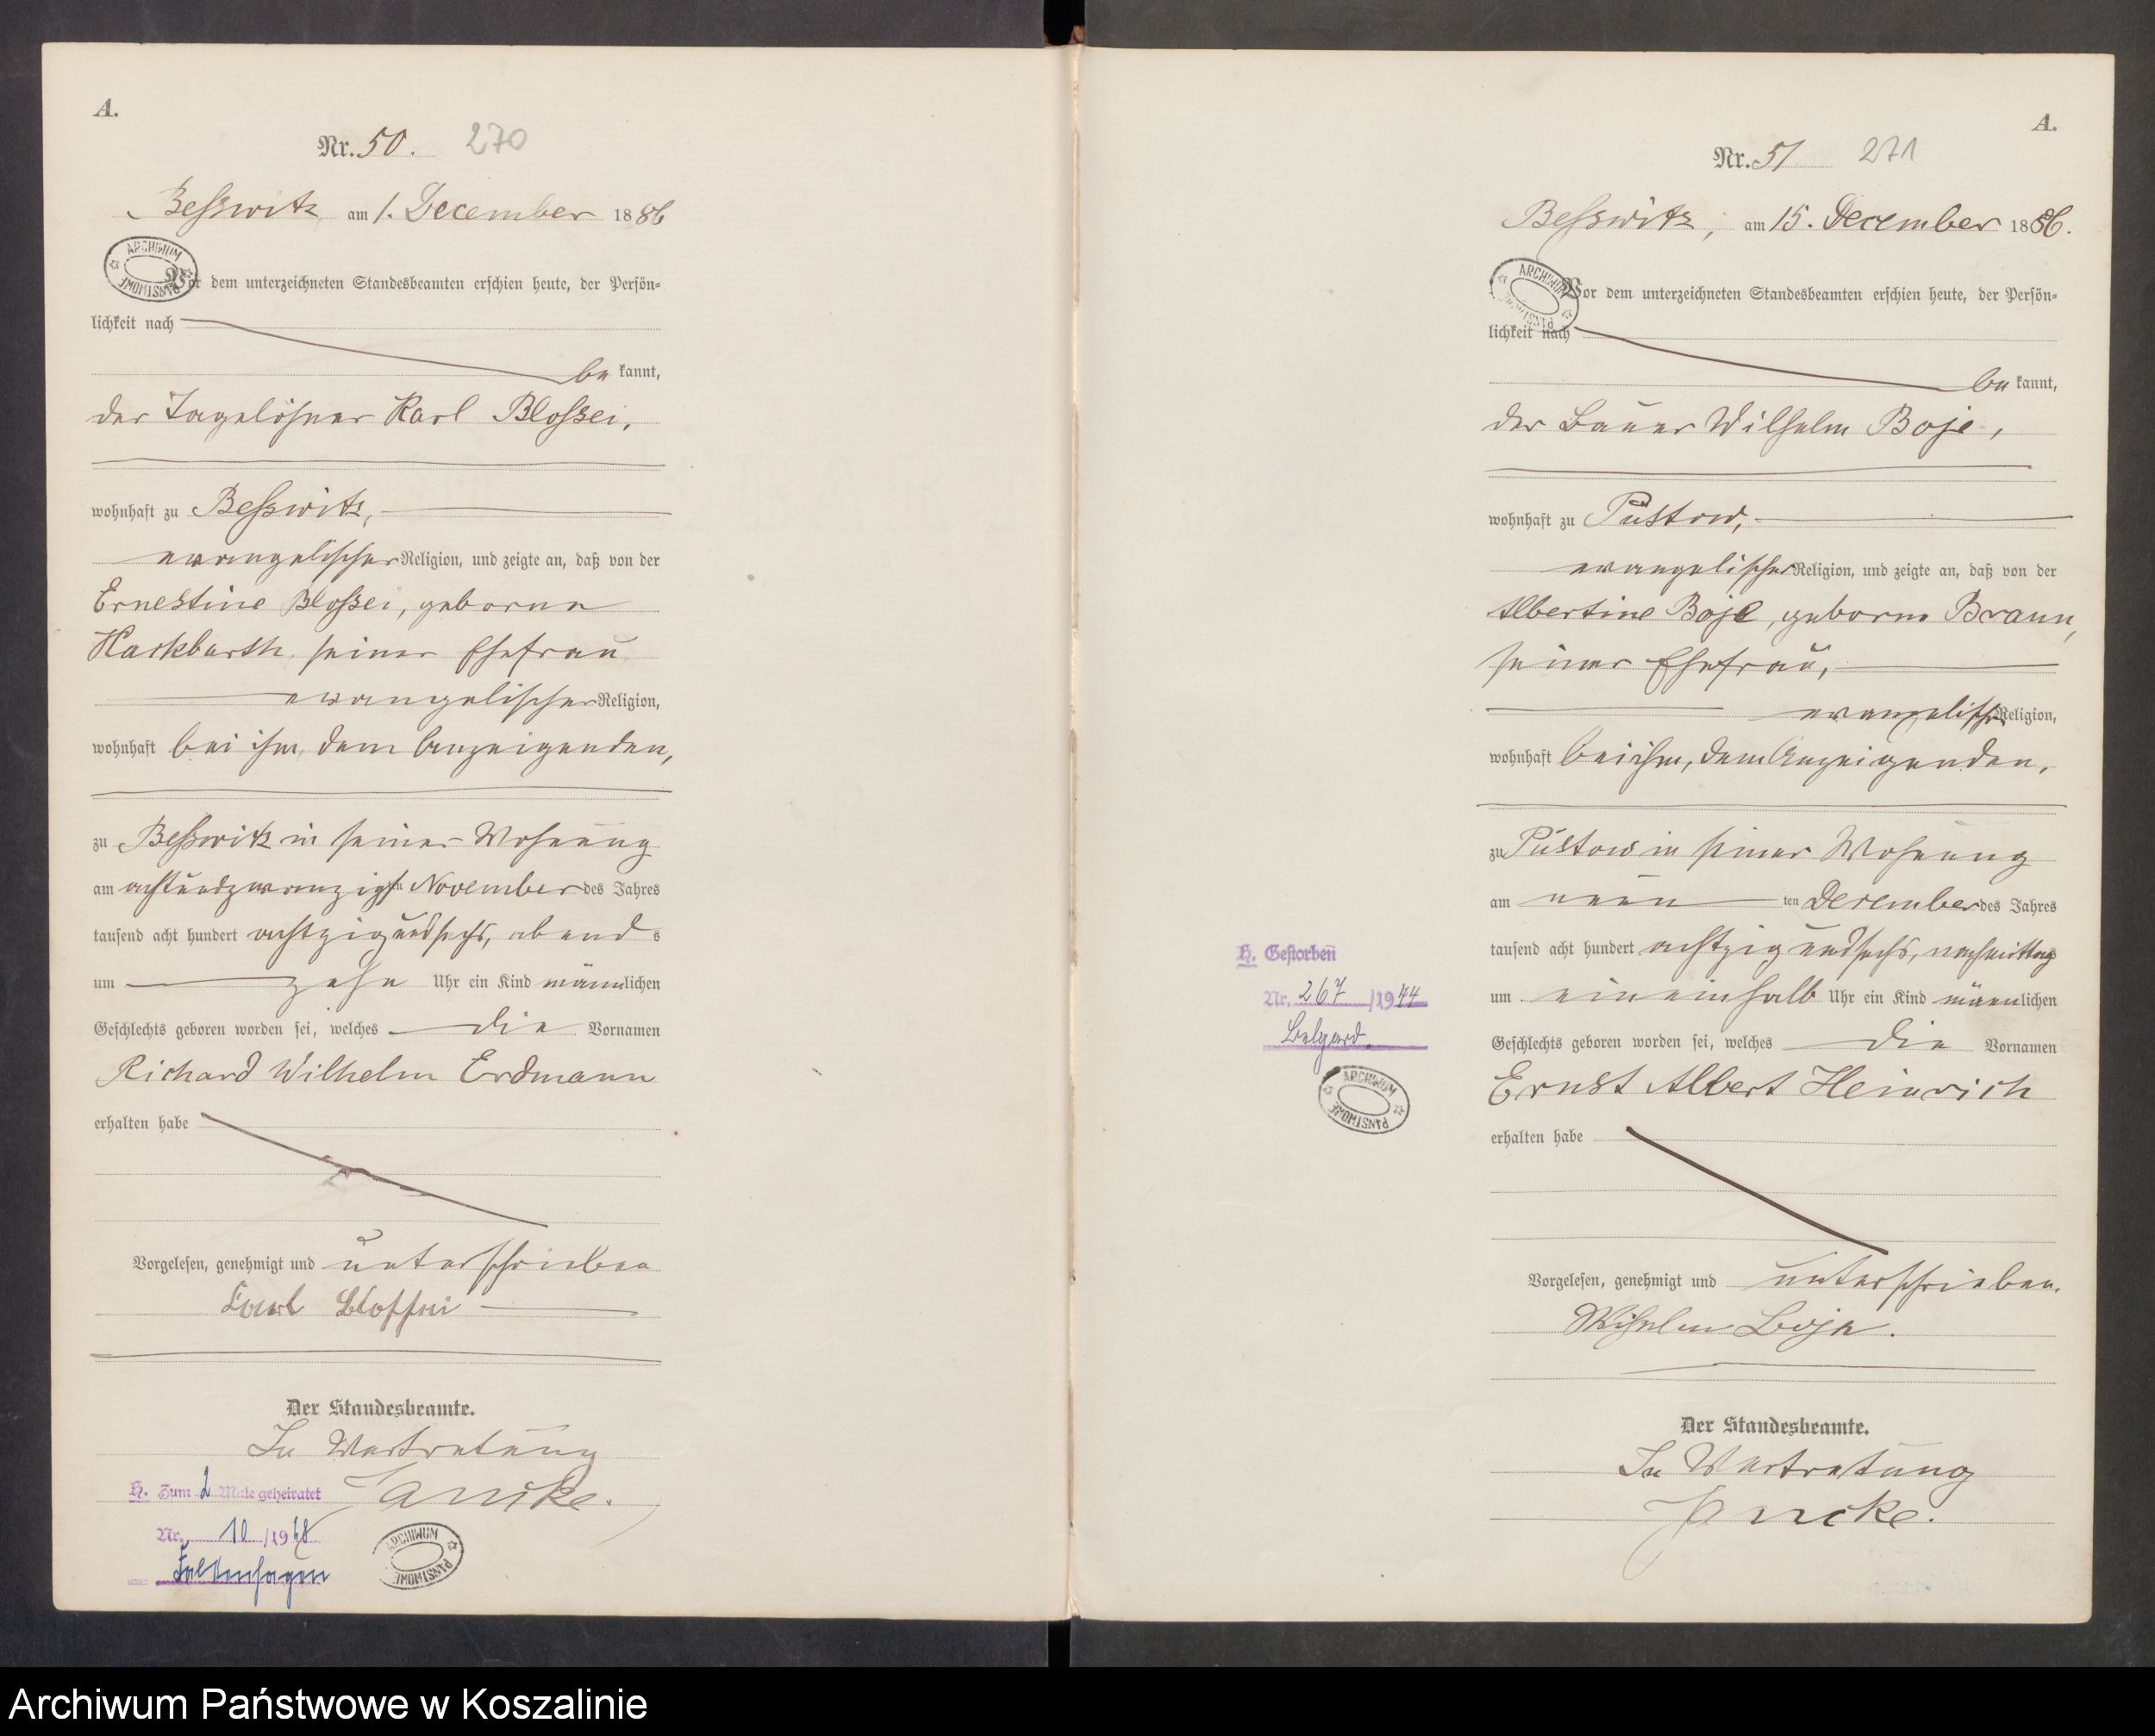 A.
Nr. 50. 270
Beßwitz am 1. December 1886
ARCHIWUM PAŃSTWOWE
Vor dem unterzeichneten Standesbeamten erschien heute, der Persön-
lichkeit nach
be kannt,
der Tagelöhner Karl Bloßei,
wohnhaft zu Beßwitz,
evangelischer Religion, und zeigte an, daß von der
Ernestine Bloßei, geborne
Hackbarth seiner Ehefrau
evangelischer Religion,
wohnhaft bei ihm, dem Anzeigenden,
zu Beßwitz in seiner Wohnung
am achtundzwanzigsten November des Jahres
tausend acht hundert achtzig und sechs, abends
um zehn Uhr ein Kind männlichen
Geschlechts geboren worden sei, welches die Vornamen
Richard Wilhelm Erdmann
erhalten habe
Vorgelesen, genehmigt und unterschrieben
Karl Blossei
Der Standesbeamte.
In Vertretung
Jancke.
H. Zum 2 Male geheiratet
Nr. 10 /19
Falkenhagen
ARCHIWUM PAŃSTWOWE
A.
Nr. 51 271
Beßwitz, am 15. December 1886.
ARCHIWUM PAŃSTWOWE
Vor dem unterzeichneten Standesbeamten erschien heute, der Persön-
lichkeit nach
be kannt,
der Bauer Wilhelm Boje,
wohnhaft zu Püstow,
evangelischer Religion, und zeigte an, daß von der
Albertine Boje, geborne Braun,
seiner Ehefrau,
evangelischer Religion,
wohnhaft bei ihm, dem Anzeigenden,
zu Püstow in seiner Wohnung
am neun ten December des Jahres
tausend acht hundert achtzig und sechs, nachmittags
um ein einhalb Uhr ein Kind männlichen
Geschlechts geboren worden sei, welches die Vornamen
Ernst Albert Heinrich
erhalten habe
Vorgelesen, genehmigt und unterschrieben.
Wilhelm Boje.
Der Standesbeamte.
In Vertretung
Jancke.
H. Gestorben
Nr. 267 /1944
Belgard.
ARCHIWUM PAŃSTWOWE
Archiwum Państwowe w Koszalinie